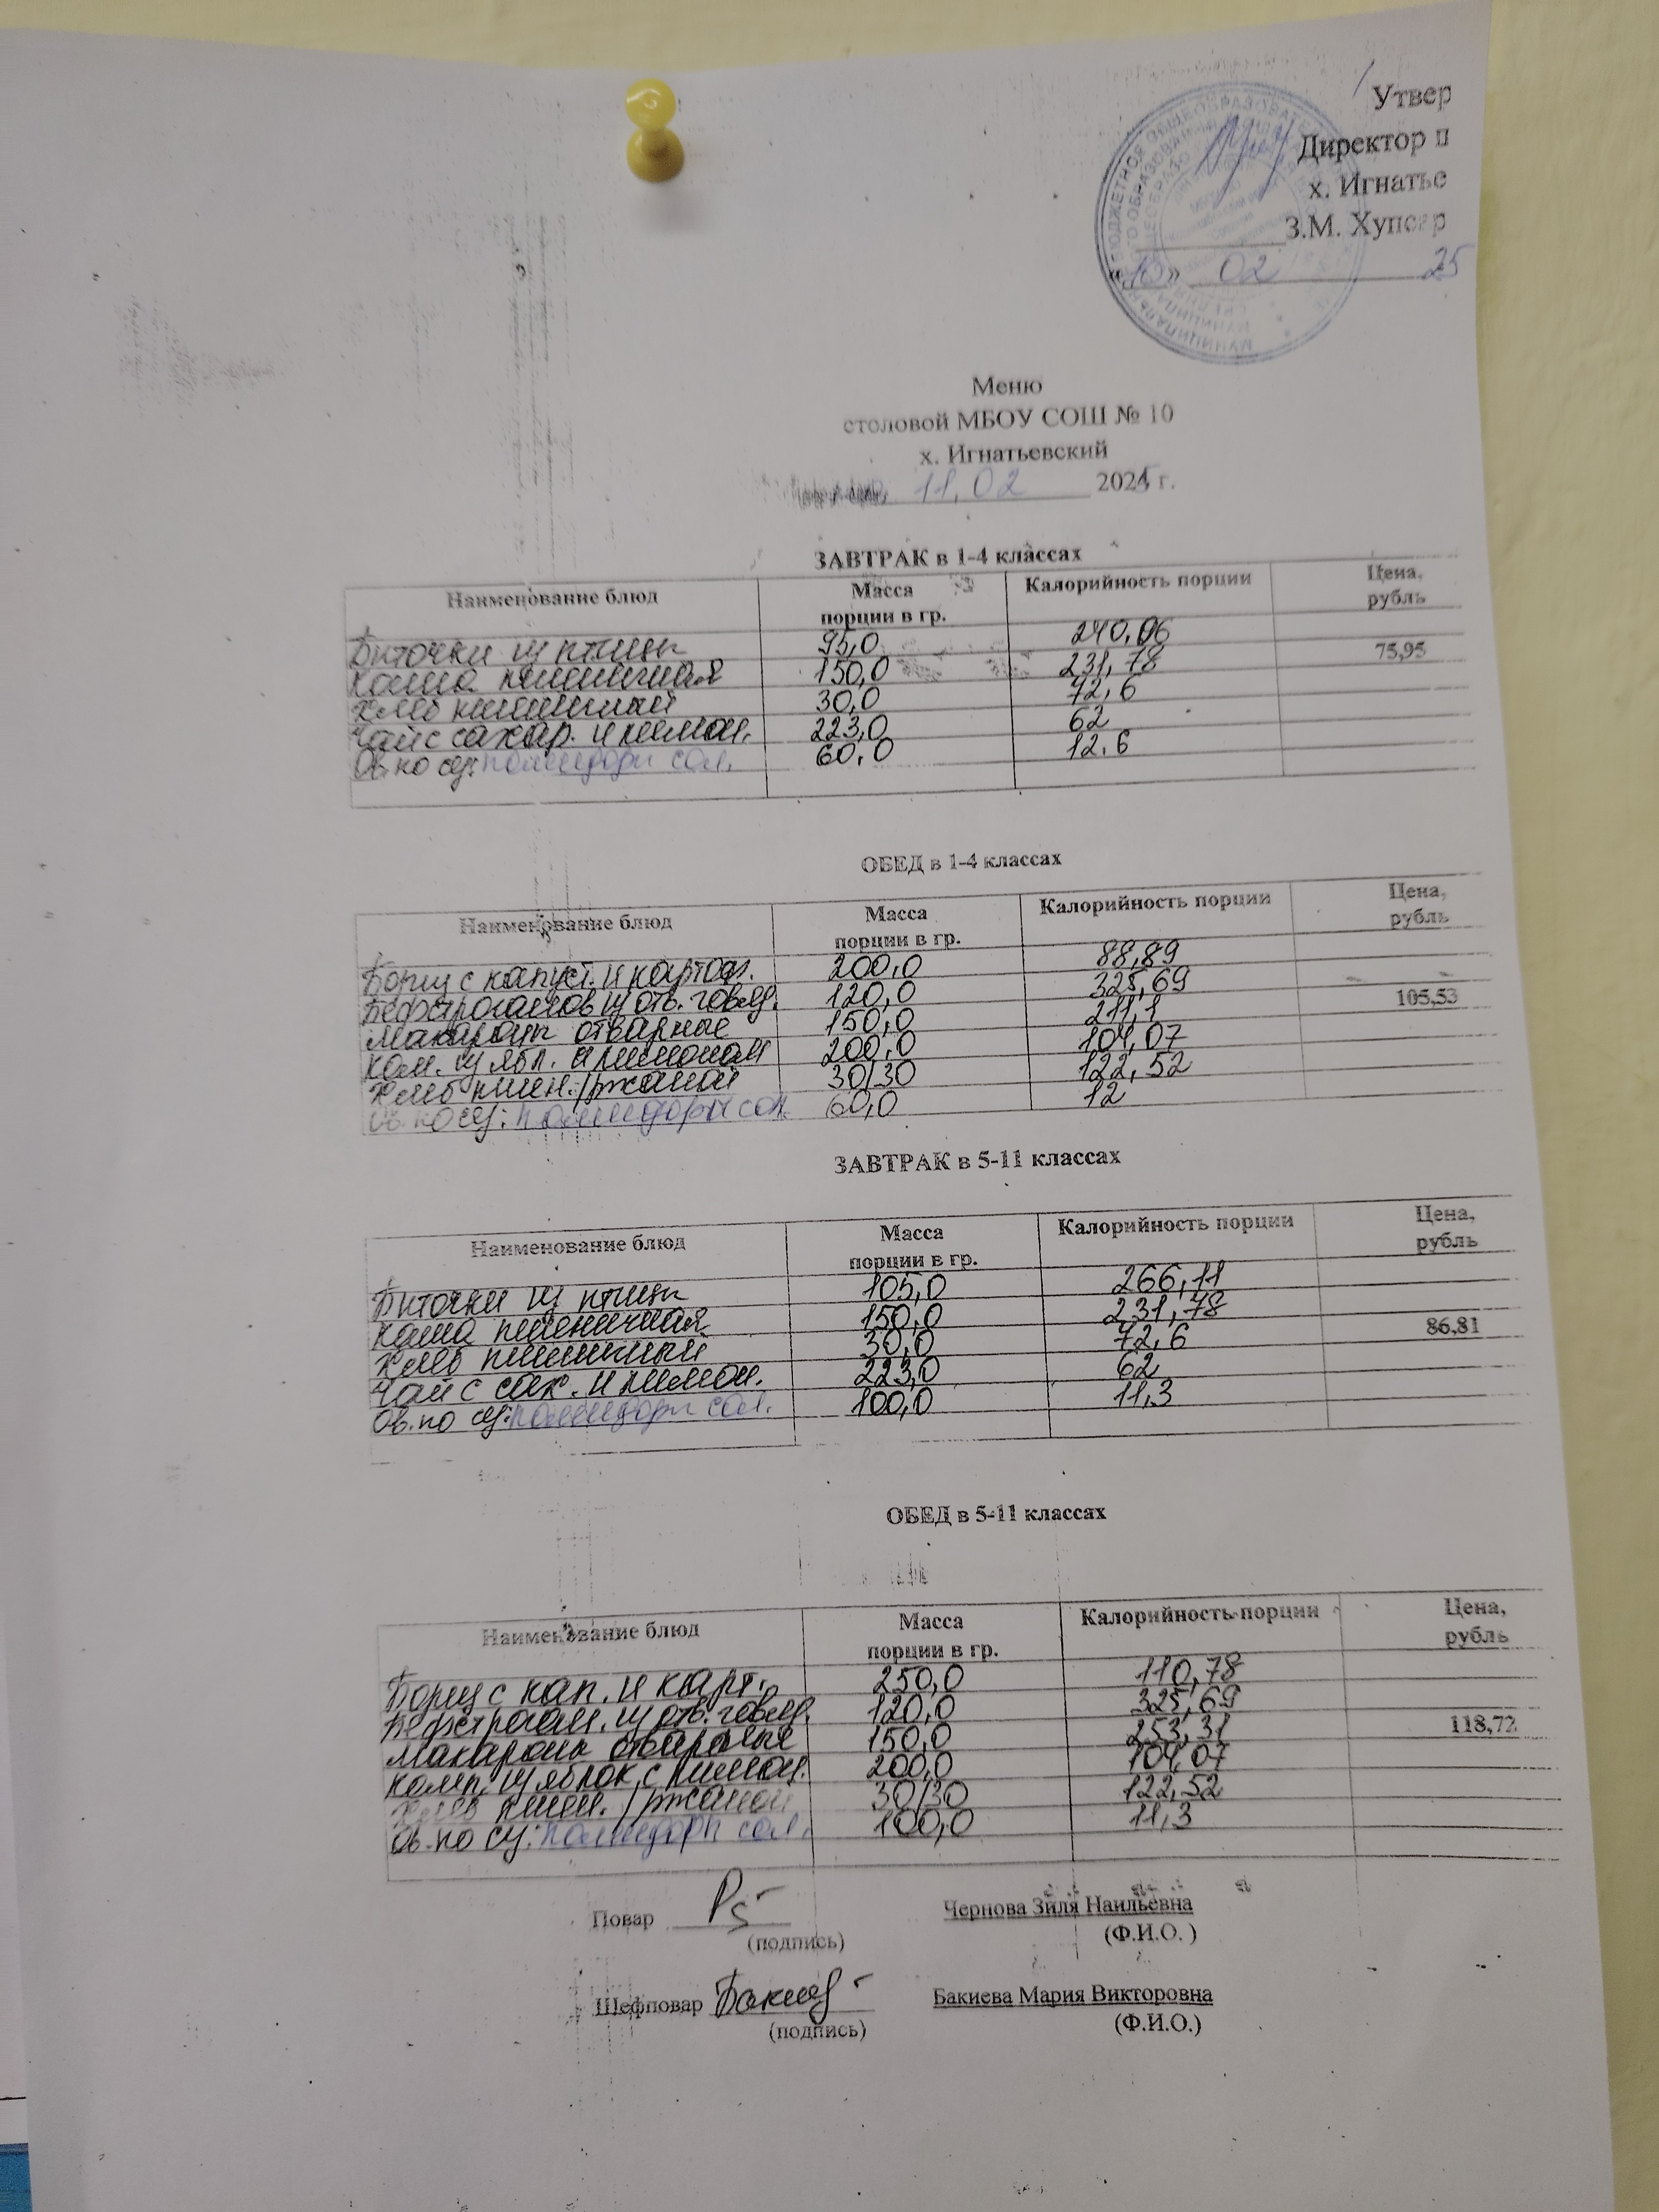 Утвер
Директор п
х. Игнатье
З.М. Хупсар
«10» 02 25
Меню
столовой МБОУ СОШ № 10
х. Игнатьевский
11.02 2025 г.
ЗАВТРАК в 1-4 классах
Наименование блюд Масса порции в гр. Калорийность порции Цена, рубль
Биточки из птицы 95,0 240,06
Каша пшеничная 150,0 231,78 75,95
Хлеб пшеничный 30,0 72,6
Чай с сахар. и лимон. 223,0 62
Ов. по сез: помидоры сол. 60,0 12,6
ОБЕД в 1-4 классах
Наименование блюд Масса порции в гр. Калорийность порции Цена, рубль
Борщ с капуст. и картоф. 200,0 88,89
Бефстроганов из отв. говяд. 120,0 325,69 105,53
Макароны отварные 150,0 211,1
Ком. из ябл. и лимоном 200,0 104,07
Хлеб пшен./ржаной 30/30 122,52
Ов. по сез: помидоры сол. 60,0 12
ЗАВТРАК в 5-11 классах
Наименование блюд Масса порции в гр. Калорийность порции Цена, рубль
Биточки из птицы 105,0 266,11
Каша пшеничная 150,0 231,78 86,81
Хлеб пшеничный 30,0 72,6
Чай с сах. и лимон. 223,0 62
Ов. по сез: помидоры сол. 100,0 11,3
ОБЕД в 5-11 классах
Наименование блюд Масса порции в гр. Калорийность порции Цена, рубль
Борщ с кап. и карт. 250,0 110,78
Бефстроган. из отв. говяд. 120,0 325,69
Макароны отварные 150,0 253,31 118,72
Комп. из яблок с лимон. 200,0 104,07
Хлеб пшен./ржаной 30/30 122,52
Ов. по сез: помидоры сол. 100,0 11,3
Повар Чернова Зиля Наильевна
(подпись) (Ф.И.О. )
Шефповар Бакиева Бакиева Мария Викторовна
(подпись) (Ф.И.О.)